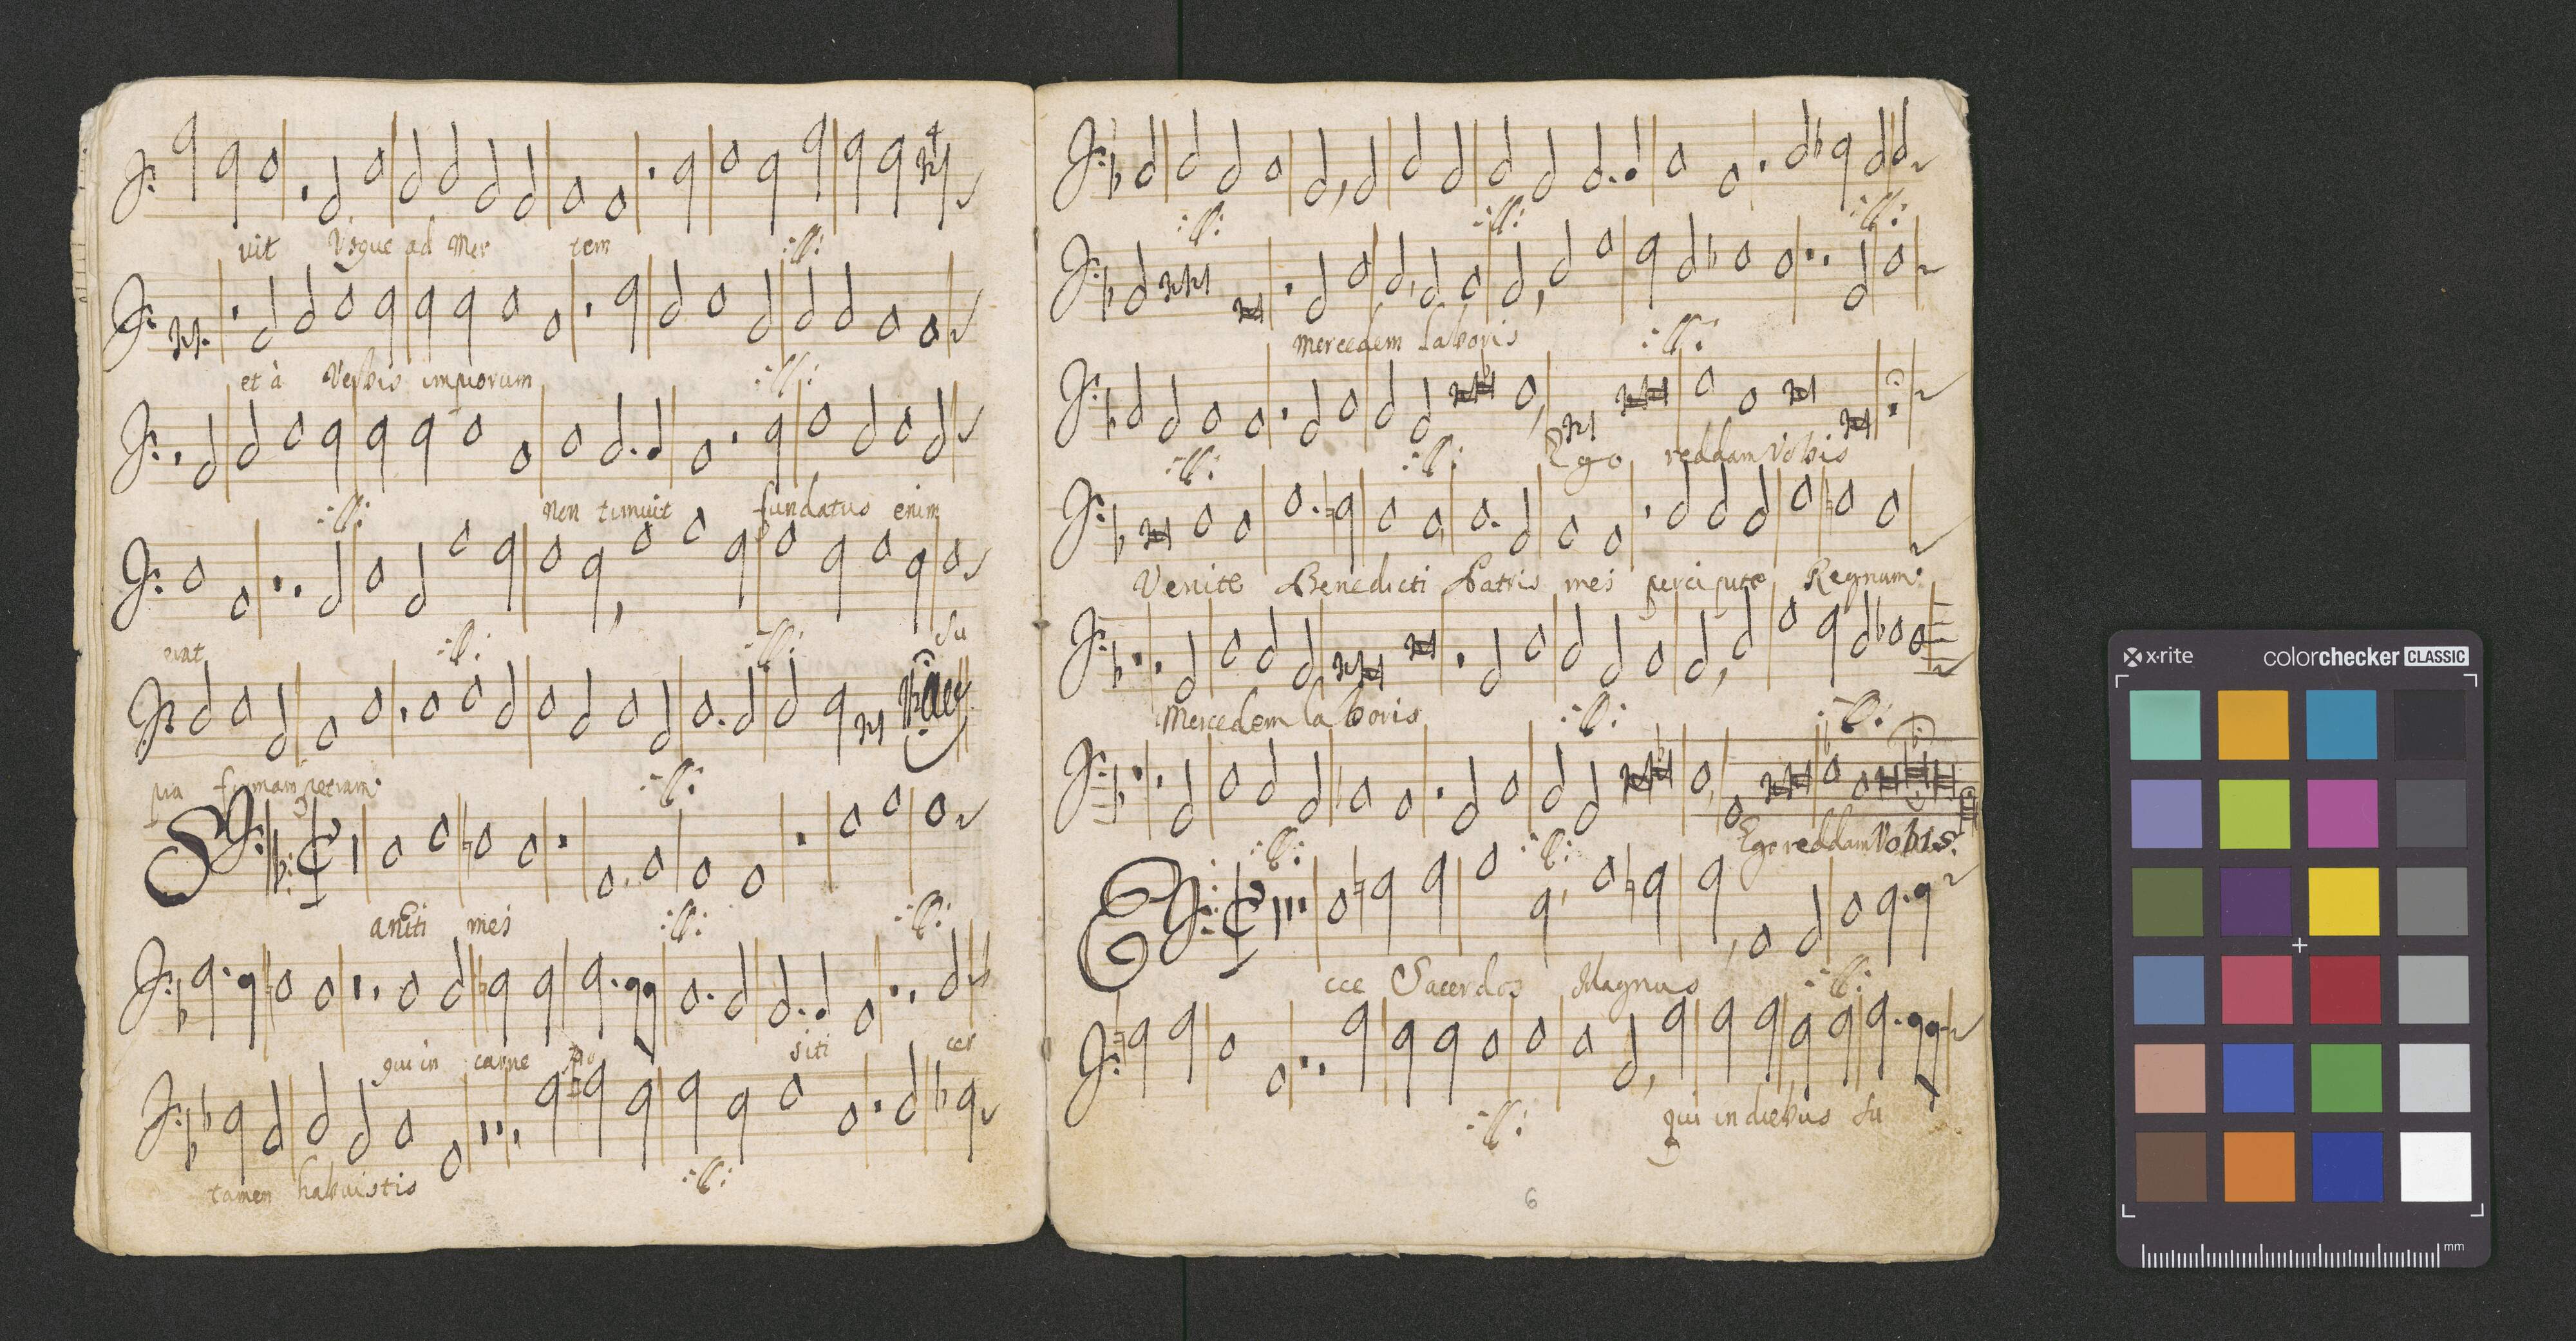 vit Vsque ad Mor tem :||:
et à Verbis impiorum :||:
:||: non timuit fundatus enim
erat :||: :||: su
pra firmam petram. :||:
Sancti mei :||: :||:
qui in carne po siti cer
tamen habuistis :||:
:||: :||: :||:
Mercedem laboris :||:
:||: :||: Ego reddam Vobis
Venite Benedicti Patris mei percipite Regnum.
Mercedem laboris :||: :||:
:||: :||: Ego reddam Vobis.
Ecce Sacerdos Magnus :||:
:||: qui in diebus su
6
x-rite colorchecker CLASSIC
mm